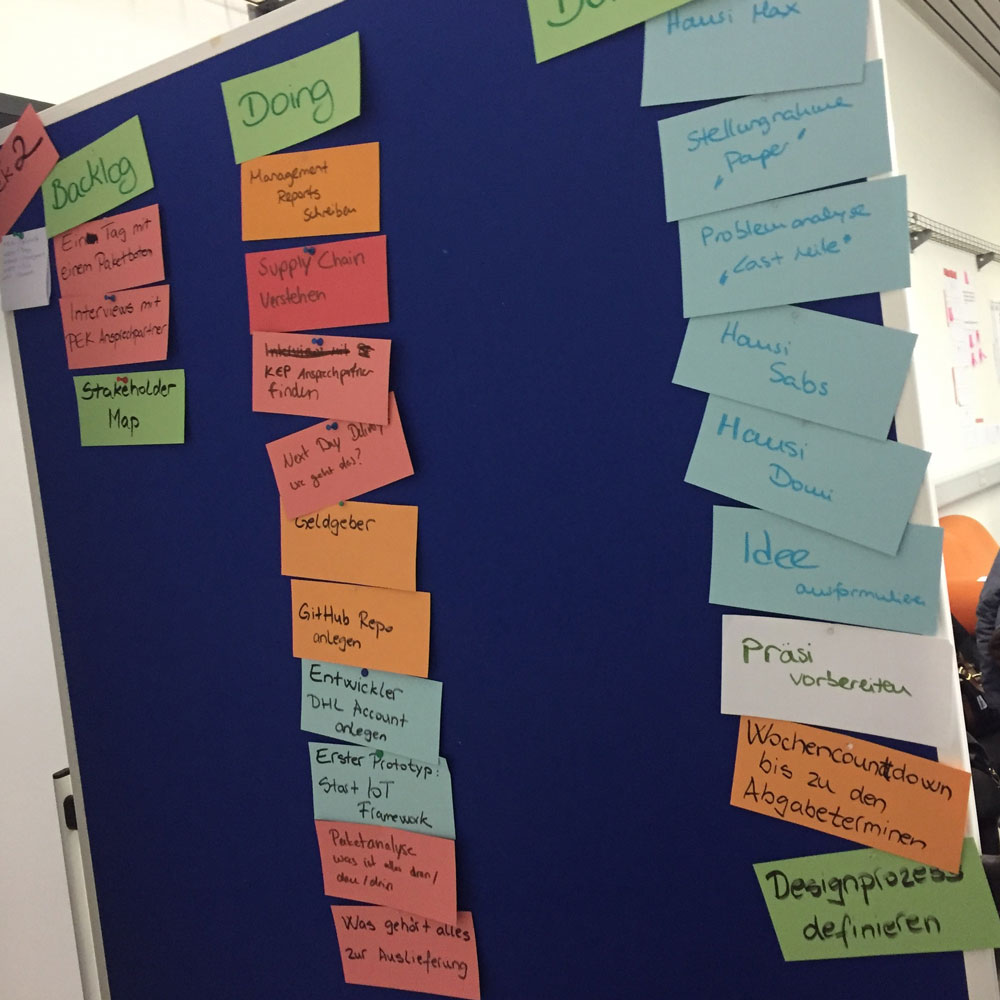 2
Backlog
Ein Tag mit
einem Paketboten
Interviews mit
PEK Ansprechpartner
Stakeholder
Map
Doing
Management
Reports
schreiben
Supply Chain
Verstehen
KEP Ansprechpartner
finden
Next Day Delivery
wie geht das?
Geldgeber
GitHub Repo
anlegen
Entwickler
DHL Account
anlegen
Erster Prototyp:
Start IoT
Framework
Paketanalyse
was ist alles dran/
drin
Was gehört alles
zur Auslieferung
Hausi Max
Stellungnahme
"Paper"
Problemanalyse
"Last Mile"
Hausi
Sabs
Hausi
Domi
Idee
ausformulieren
Präsi
vorbereiten
Wochencountdown
bis zu den
Abgabeterminen
Designprozess
definieren